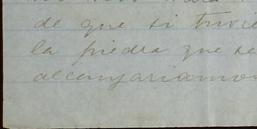 de que si tuvie
la piedra que se
alcanzariamos